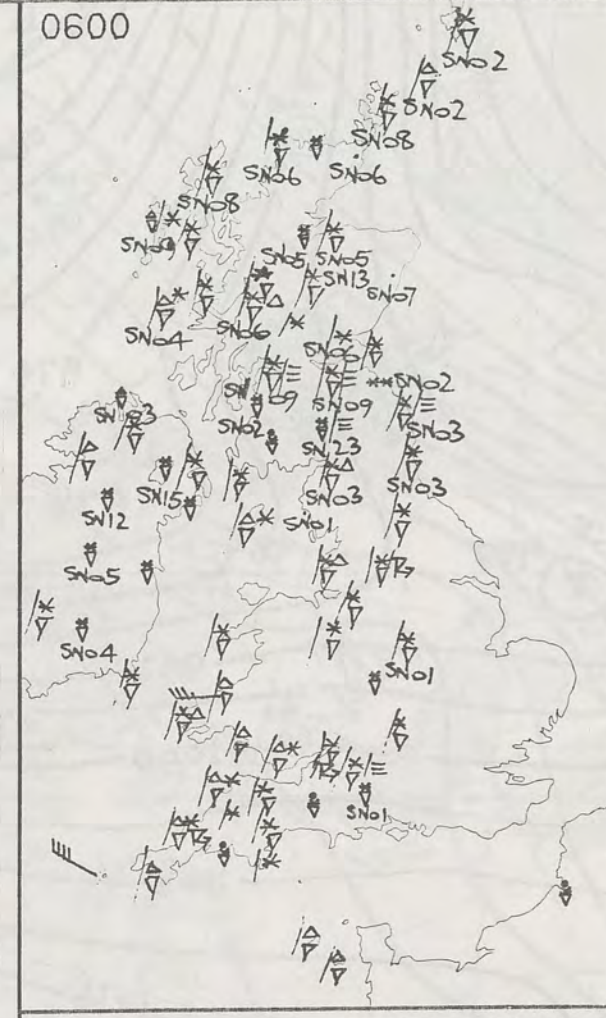 0600
SN02
SN02
SN08
SN06
SN06
SN08
SN09
SN05
SN05
SN13
SN07
SN04
SN06
SN06
SN02
SN09
SN02
SN03
SN23
SN15
SN03
SN03
SN12
SN01
SN05
SN04
SN01
SN01